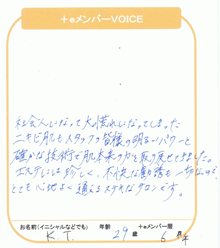 +eメンバーVOICE
社会人になって大荒れになってしまった
ニキビ肌もスタッフの皆様の明るいパワーと
確かな技術で肌本来の力を取り戻せてきました。
エステには珍しく、不快な勧誘も一切なので、
とても心地よく通えるステキなサロンです。
お名前(イニシャルなどでも) 年齢 +eメンバー暦
K.T. 29歳 6年